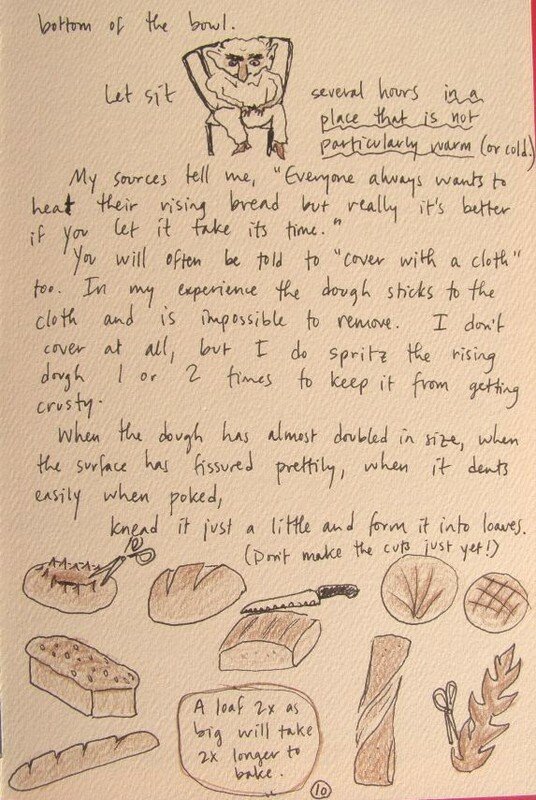 bottom of the bowl.
Let sit several hours in a
place that is not
particularly warm (or cold.)
My sources tell me, "Everyone always wants to
heat their rising bread but really it's better
if you let it take its time."
You will often be told to "cover with a cloth"
too. In my experience the dough sticks to the
cloth and is impossible to remove. I don't
cover at all, but I do spritz the rising
dough 1 or 2 times to keep it from getting
crusty.
When the dough has almost doubled in size, when
the surface has fissured prettily, when it dents
easily when poked,
knead it just a little and form it into loaves.
(Don't make the cuts just yet!)
A loaf 2x as
big will take
2x longer to
bake.
10